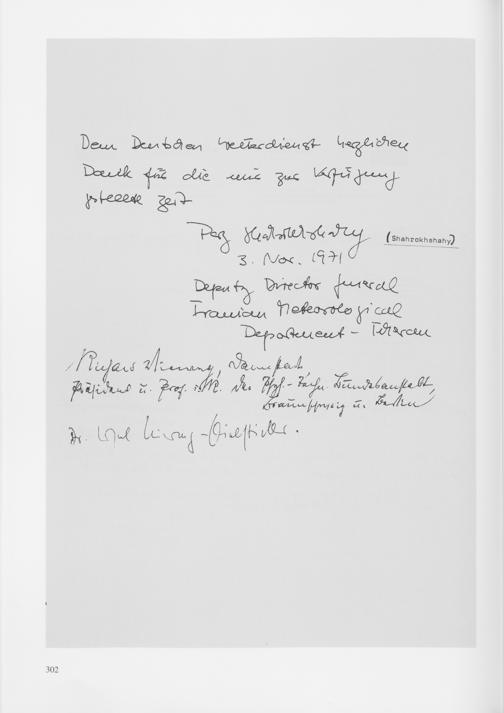 Dem Deutschen Wetterdienst herzlichen
Dank für die mir zur Verfügung
gestellte Zeit
(Shahrokhshahy)
3. Nov. 1971
Deputy Director General
Iranian Meteorological
Department - Teheran
Präsident u. Prof. der Phys.-Techn. Bundesanstalt,
Braunschweig u. Berlin
Dr.
302